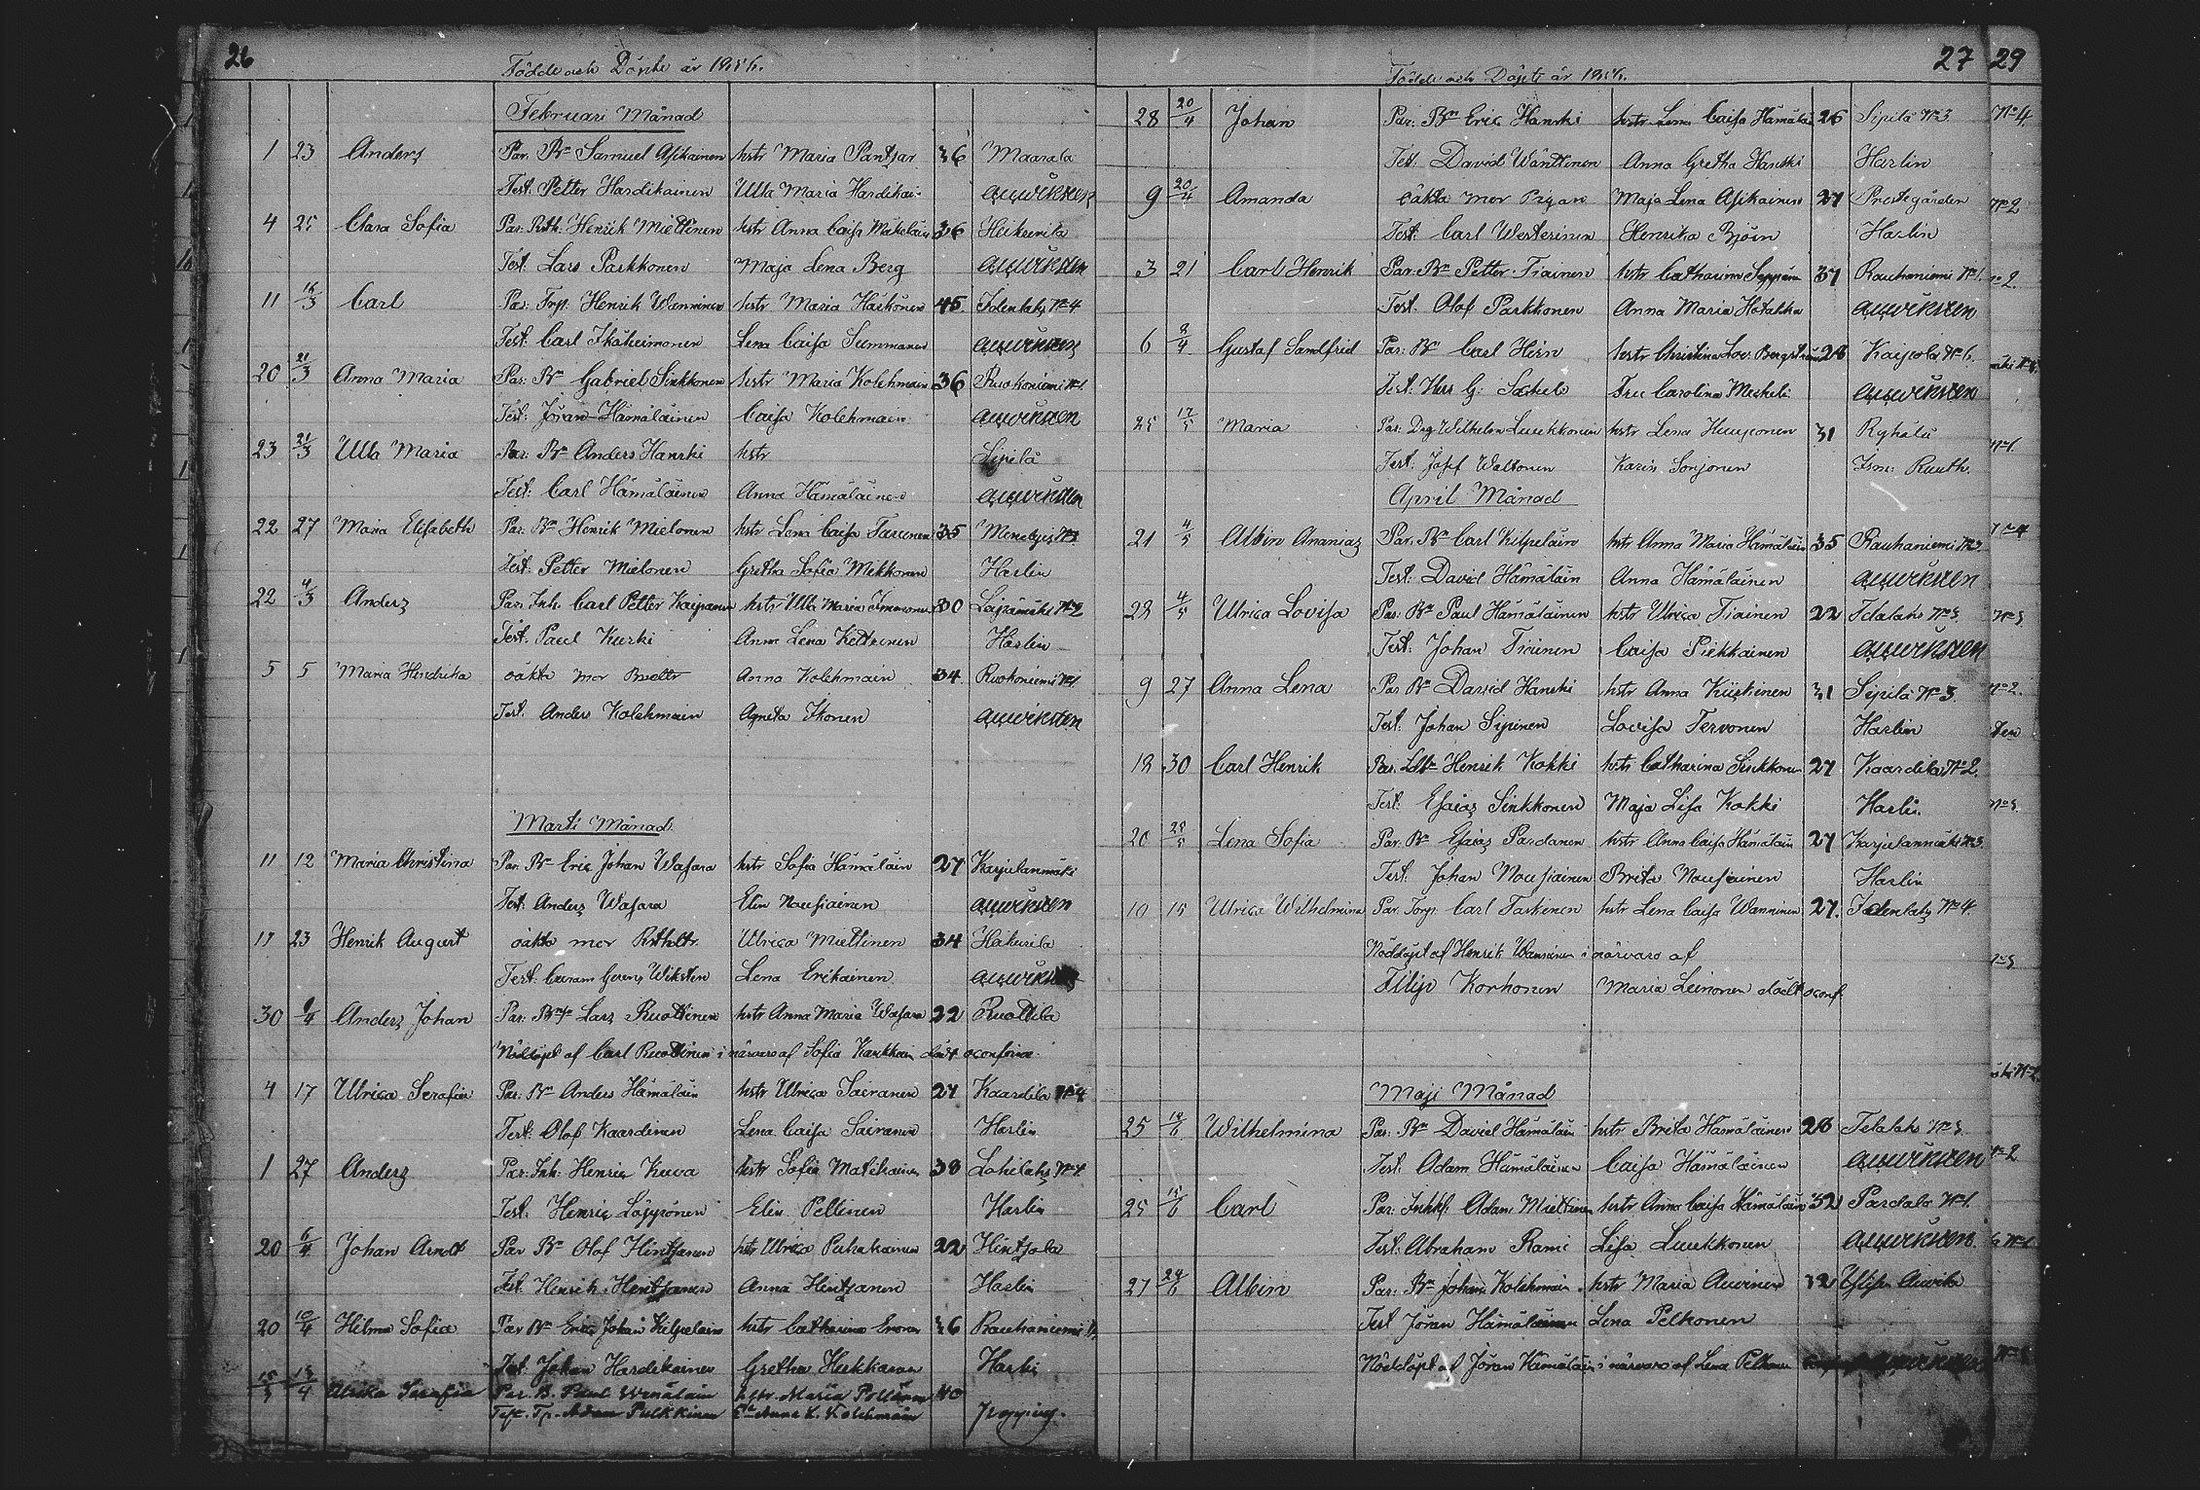 26
Födde och Döpte år 1856.
Februari Månad
1 23 Anders Par. Bn Samuel Asikainen hstr Maria Pantsar 36 Maarala
Test. Petter Hardikainen Ulla Maria Hardikai- Auwiksten
4 25 Clara Sofia Par. Rth. Henrik Miettinen hstr Anna Caisa Makeläin 36 Heikurila
Test. Lars Parkkonen Maja Lena Berg Auwiksten
11 16/3 Carl Par. Trp. Henrik Wanninen hstr Maria Haikonen 45 Idenlaks No 4
Test. Carl Ikäheimonen Lena Caisa Summanen Auwiksten
20 21/3 Anna Maria Par. Bn Gabriel Sinkkonen hstr Maria Kolehmain 36 Ruokoniemi No 1
Test. Jöran Hämäläinen Caisa Kolehmain Auwiksten
23 21/3 Ulla Maria Par. Bn Anders Hanski hstr Sipilä
Test. Carl Hämäläinen Anna Hämäläinen Auwiksten
22 27 Maria Elisabeth Par. Bn Henrik Mielonen hstr Lena Caisa 35
Test. Petter Mielonen Gretha Sofia Mikkonen Haslin
22 4/3 Anders Par. Inh. Carl Petter hstr Ulla Maria Immonen 30 No 2
Test. Paul Kurki Anna Lena Kettunen Haslin
5 5 Maria Hendrika oäkta mor Anna Kolehmain 34 Ruokoniemi No 1
Test. Anders Kolehmain Agneta Ikonen Auwiksten
Marti Månad
11 12 Maria Christina Par. Bn Eric Johan Wasara hstr Sofia Hämäläin 27 Karjulanmäki
Test. Anders Wasara Elin Nousiainen Auwiksten
17 23 Henrik August oäkta mor Ulrica Miettinen 34 Hakurila
Test. Wiksten Lena Erikainen Auwiksten
30 6/4 Anders Johan Par. Lars Ruottinen hstr Anna Maria Wasara 22 Ruottila
Nöddöpt af Carl Ruottinen i närvaro af Sofia Karkkain
4 17 Ulrica Serafia Par. Bn Anders Hämäläin hstr Ulrica Sairanen 27 Kaardila No 4
Test. Olof Kaardinen Lena Caisa Sairanen Haslin
1 27 Anders Par. Inh. Henric Kuva hstr Sofia Matikainen 38 Lahilaks No 4
Test. Henric Löppönen Elin Peltinen Haslin
20 6/4 Johan Arnolt Par. Bn Olof Hintsanen hstr Ulrica Puhakainen 22 Hintsala
Test. Henrik Hintsanen Anna Hintsanen Haslin
20 10/4 Hilma Sofia Par. Bn Eric Johan Kilpeläin hstr Catharina Eronen 36 Rauhaniemi
Test. Johan Hardikainen Gretha Heikkaran Haslin
15/3 13/4 Ulrika Serafia Par. B. Paul Wenäläin hstr Maria Pöllänen 40
Test. Adam Pulkkinen Anna K. Kolehmain Popping.
27
Födde och Döpte år 1856.
28 20/4 Johan Par. Bn Eric Hanski hstr Lena Caisa Hämälä 26 Sipilä No 3
Test. David Wänttinen Anna Gretha Hanski Haslin
9 20/4 Amanda oäkta mor Pigan Maja Lena Asikainen 27 Prostgården
Test. Carl Westerinen Henrika Björn Haslin
3 21 Carl Henrik Par. Bn Petter Tiainen hstr Catharina Seppäin 37 Rauhaniemi No 1
Test. Olof Parkkonen Anna Maria Hotakka Auwiksten
6 9/4 Gustaf Sandfrid Par. Bn Carl Hirn hstr Christina Lov. Bergström 28 Kaipola No 6
Test. Herr G. Fru Carolina Auwiksten
25 12/5 Maria Par. Drg Wilhelm Luukkonen hstr Lena Huuponen 31 Ryhälä
Test. Josef Waltonen Karin Sonjonen Ism. Ruuth.
April Månad
21 4/5 Albin Ananias Par. Bn Carl Kilpeläin hstr Anna Maria Hämäläin 35 Rauhaniemi No 3
Test. David Hämäläin Anna Hämäläinen Auwiksten
28 4/5 Ulrica Lovisa Par. Bn Paul Hämäläinen hstr Ulrica Tiainen 22 Telalaks No 3
Test. Johan Tiainen Caisa Piekkainen Auwiksten
9 27 Anna Lena Par. Bn David Hanski hstr Anna Kiiskinen 31 Sipilä No 3
Test. Johan Sipinen Lovisa Tervonen Haslin
18 30 Carl Henrik Par. Henrik Kokki hstr Catharina Sinkkonen 27 Kaardila No 2
Test. Esaias Sinkkonen Maja Lisa Kokki Haslin
20 28/5 Lena Sofia Par. Bn Esaias Pardanen hstr Anna Caisa Hämäläin 27 Karjulanmäki No 3
Test. Johan Nousiainen Brita Nousiainen Haslin
10 15 Ulrica Wilhelmina Par. Torp. Carl Taskinen hstr Lena Caisa Wanninen 27 Idenlaks No 4
Nöddöpt af Henrik Wanninen i närvaro af
Filip Korhonen Maria Leinonen
Maji Månad
25 18/6 Wilhelmina Par. Bn David Hämäläin hstr Brita Hämäläinen 28 Telalaks No 3
Test. Adam Hämäläinen Caisa Hämäläinen Auwiksten
25 15/6 Carl Par. Inhs. Adam Miettinen hstr Anna Caisa Hämäläin 32 Pardala No 1
Test. Abraham Rami Lisa Luukkonen Auwiksten
27 29/6 Albin Par. Bn Johan Kolehmain hstr Maria Auvinen 32
Test. Jöran Hämäläinen Lena Pelkonen
Nöddöpt af Jöran Hämäläin i närvaro af Lena Pelkonen Auwiksten
29
No 4
No 2